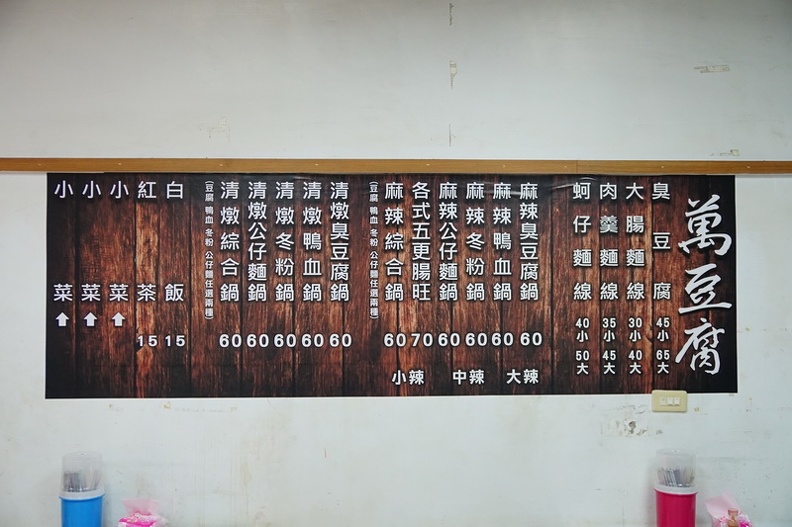 萬豆腐
臭豆腐 45小 65大
大腸麵線 30小 40大
肉羹麵線 35小 45大
蚵仔麵線 40小 50大
麻辣臭豆腐鍋 60
麻辣鴨血鍋 60
麻辣冬粉鍋 60
麻辣公仔麵鍋 60
各式五更腸旺 70
麻辣綜合鍋 60
(豆腐 鴨血 冬粉 公仔麵任選兩種)
大辣 中辣 小辣
清燉臭豆腐鍋 60
清燉鴨血鍋 60
清燉冬粉鍋 60
清燉公仔麵鍋 60
清燉綜合鍋 60
(豆腐 鴨血 冬粉 公仔麵任選兩種)
白飯 15
紅茶 15
小菜⬆
小菜⬆
小菜⬆